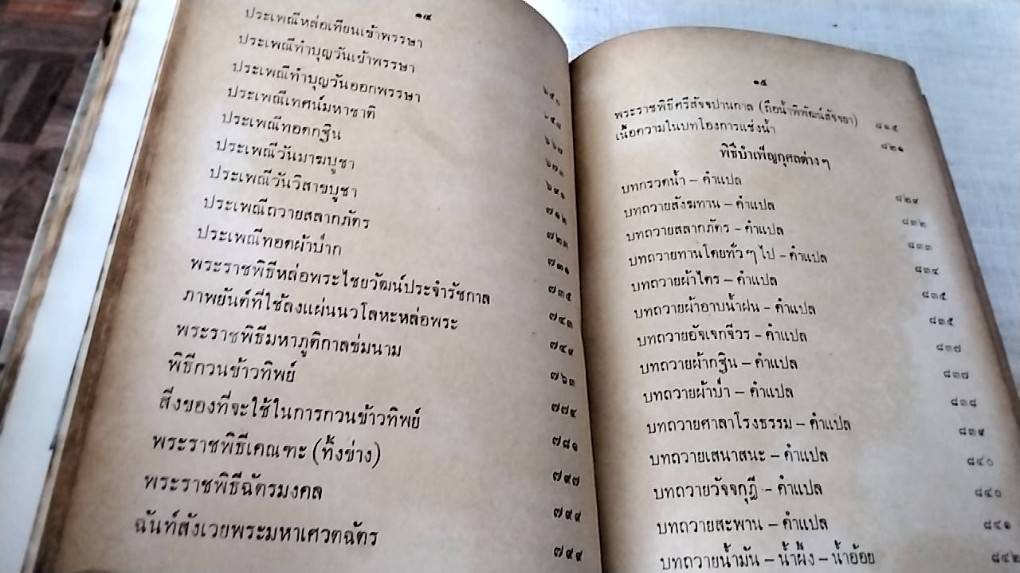 ๑๔
ประเพณีหล่อเทียนเข้าพรรษา
ประเพณีทำบุญวันเข้าพรรษา ๖๔๐
ประเพณีทำบุญวันออกพรรษา ๖๔๘
ประเพณีเทศน์มหาชาติ ๖๖๗
ประเพณีทอดกฐิน ๖๗๑
ประเพณีวันมาฆบูชา ๖๙๑
ประเพณีวันวิสาขบูชา ๗๑๒
ประเพณีถวายสลากภัตร ๗๒๑
ประเพณีทอดผ้าป่าก ๗๓๑
พระราชพิธีหล่อพระไชยวัฒน์ประจำรัชกาล ๗๓๕
ภาพยันต์ที่ใช้ลงแผ่นนวโลหะหล่อพระ ๗๔๓
พระราชพิธีมหาภูติกาลข่มนาม ๗๔๙
พิธีกวนข้าวทิพย์ ๗๖๓
สิ่งของที่จะใช้ในการกวนข้าวทิพย์ ๗๗๔
พระราชพิธีเคณฑะ (ทิ้งข่าง) ๗๘๑
พระราชพิธีฉัตรมงคล ๗๙๗
ฉันท์สังเวยพระมหาเศวตฉัตร ๗๙๙
๗๙๙
๑๕
พระราชพิธีศรีสัจจปานกาล (ถือน้ำพิพัฒน์สัจจยา) ๘๑๕
เนื้อความในบทโองการแช่งน้ำ ๘๒๑
พิธีบำเพ็ญกุศลต่างๆ
บทกรวดน้ำ – คำแปล ๘๒๙
บทถวายสังฆทาน – คำแปล ๘๓๒
บทถวายสลากภัตร – คำแปล ๘๓๓
บทถวายทานโดยทั่วๆ ไป – คำแปล ๘๓๔
บทถวายผ้าไตร – คำแปล ๘๓๕
บทถวายผ้าอาบน้ำฝน – คำแปล ๘๓๕
บทถวายอัจเจกจีวร – คำแปล ๘๓๗
บทถวายผ้ากฐิน – คำแปล ๘๓๗
บทถวายผ้าป่า – คำแปล ๘๓๘
บทถวายศาลาโรงธรรม – คำแปล ๘๓๙
บทถวายเสนาสนะ – คำแปล ๘๔๐
บทถวายวัจจกุฎี – คำแปล ๘๔๐
บทถวายสะพาน – คำแปล ๘๔๑
บทถวายน้ำมัน – น้ำผึ้ง – น้ำอ้อย ๘๔๒